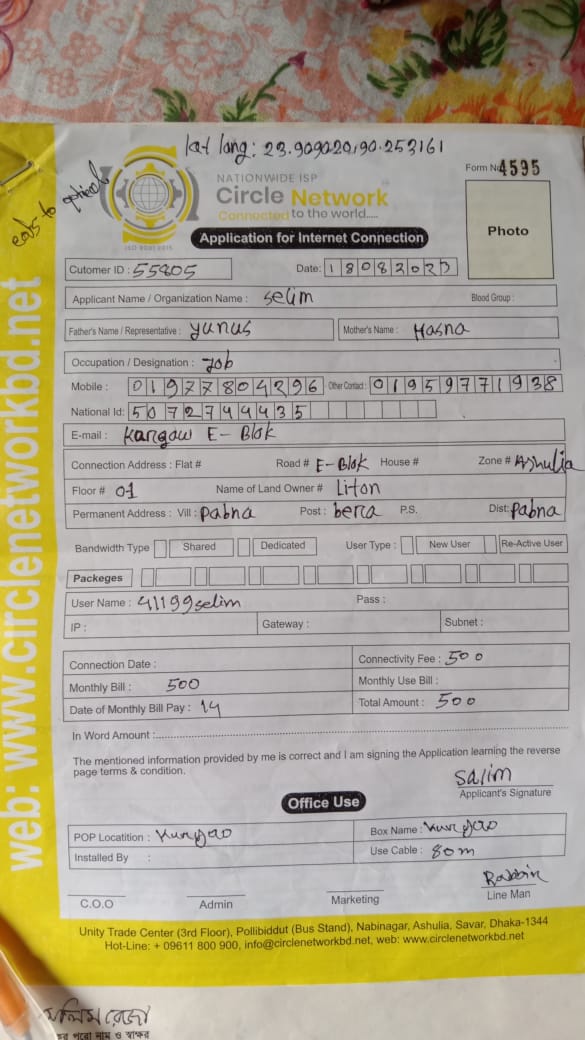 lat lang: 23.909020,90.253161
NATIONWIDE ISP
Circle Network
Connected to the world.....
ISO 9001:2015
Form No 4595
Photo
Application for Internet Connection
Cutomer ID : 55805
Date: 18082025
Applicant Name / Organization Name : Selim
Blood Group :
Father's Name / Representative : Yunus
Mother's Name : Hasna
Occupation / Designation : Job
Mobile : 01977804296 Other Contact : 01959771938
National Id: 5072744435
E-mail : Kargaw E-Blok
Connection Address : Flat # Road # E-Blok House # Zone # Ashulia
Floor # 01 Name of Land Owner # Liton
Permanent Address : Vill : Pabna Post : bera P.S. Dist: Pabna
Bandwidth Type Shared Dedicated User Type : New User Re-Active User
Packeges
User Name : 41199selim Pass :
IP : Gateway : Subnet :
Connection Date : Connectivity Fee : 500
Monthly Bill : 500 Monthly Use Bill :
Date of Monthly Bill Pay : 14 Total Amount : 500
In Word Amount :
The mentioned information provided by me is correct and I am signing the Application learning the reverse
page terms & condition.
Salim
Applicant's Signature
Office Use
POP Locatition : Kurgao Box Name : Kurgao
Installed By : Use Cable : 80m
Robbin
C.O.O Admin Marketing Line Man
Unity Trade Center (3rd Floor), Pollibiddut (Bus Stand), Nabinagar, Ashulia, Savar, Dhaka-1344
Hot-Line: + 09611 800 900, info@circlenetworkbd.net, web: www.circlenetworkbd.net
web: www.circlenetworkbd.net
রেজা
পুরো নাম ও স্বাক্ষর